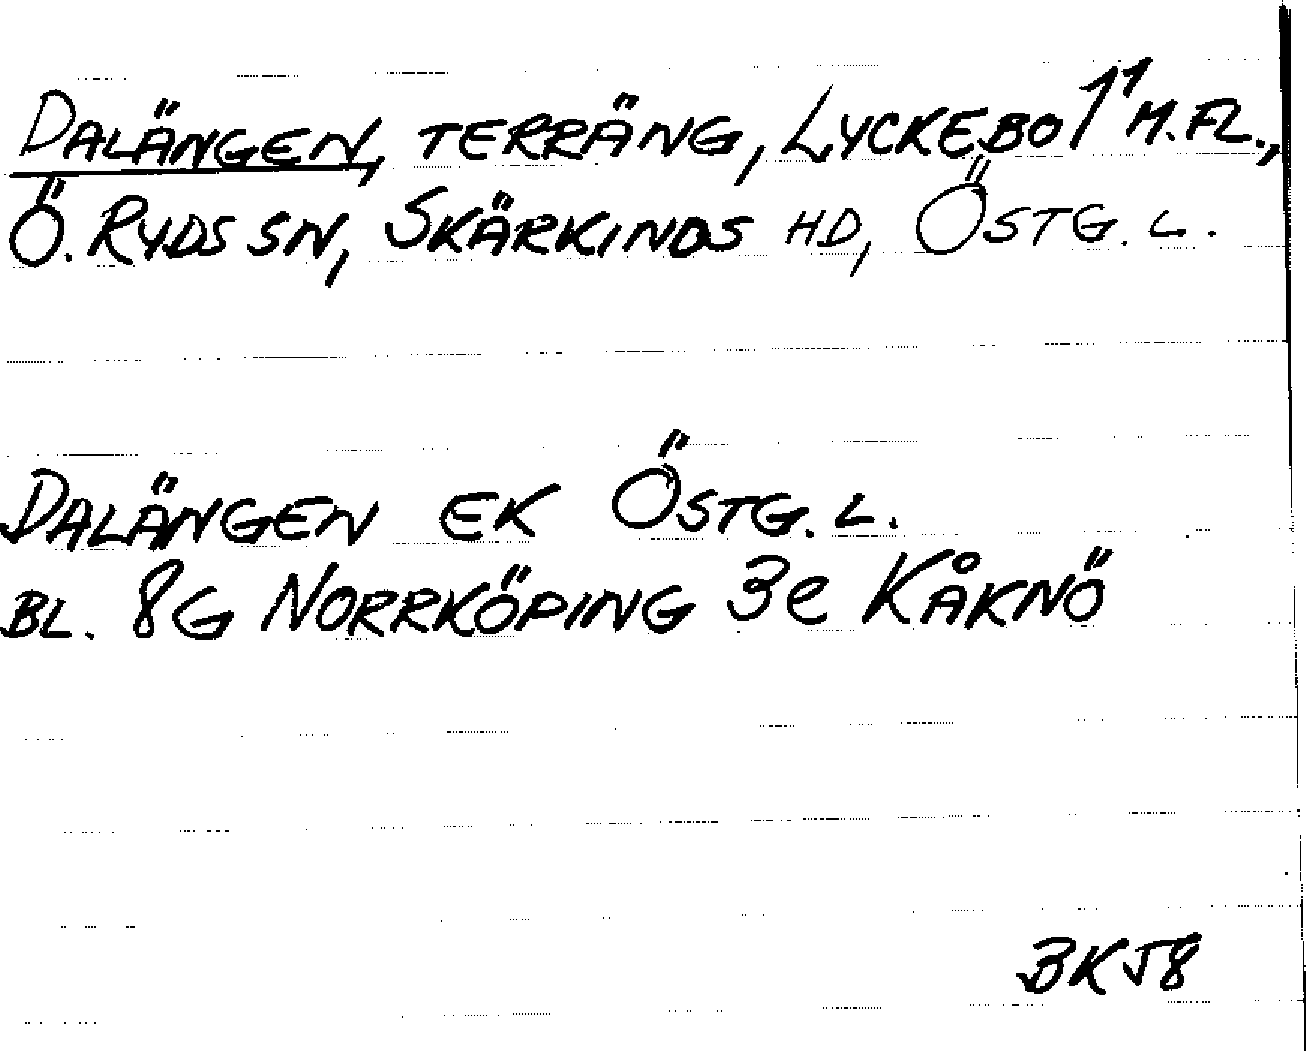 DALÄNGEN, TERRÄNG, LYCKEBO 1¹ M.FL.,
Ö. RYDS SN, SKÄRKINDS HD, ÖSTG. L.
DALÄNGEN EK ÖSTG. L.
BL. 8G NORRKÖPING 3e KÅKNÖ